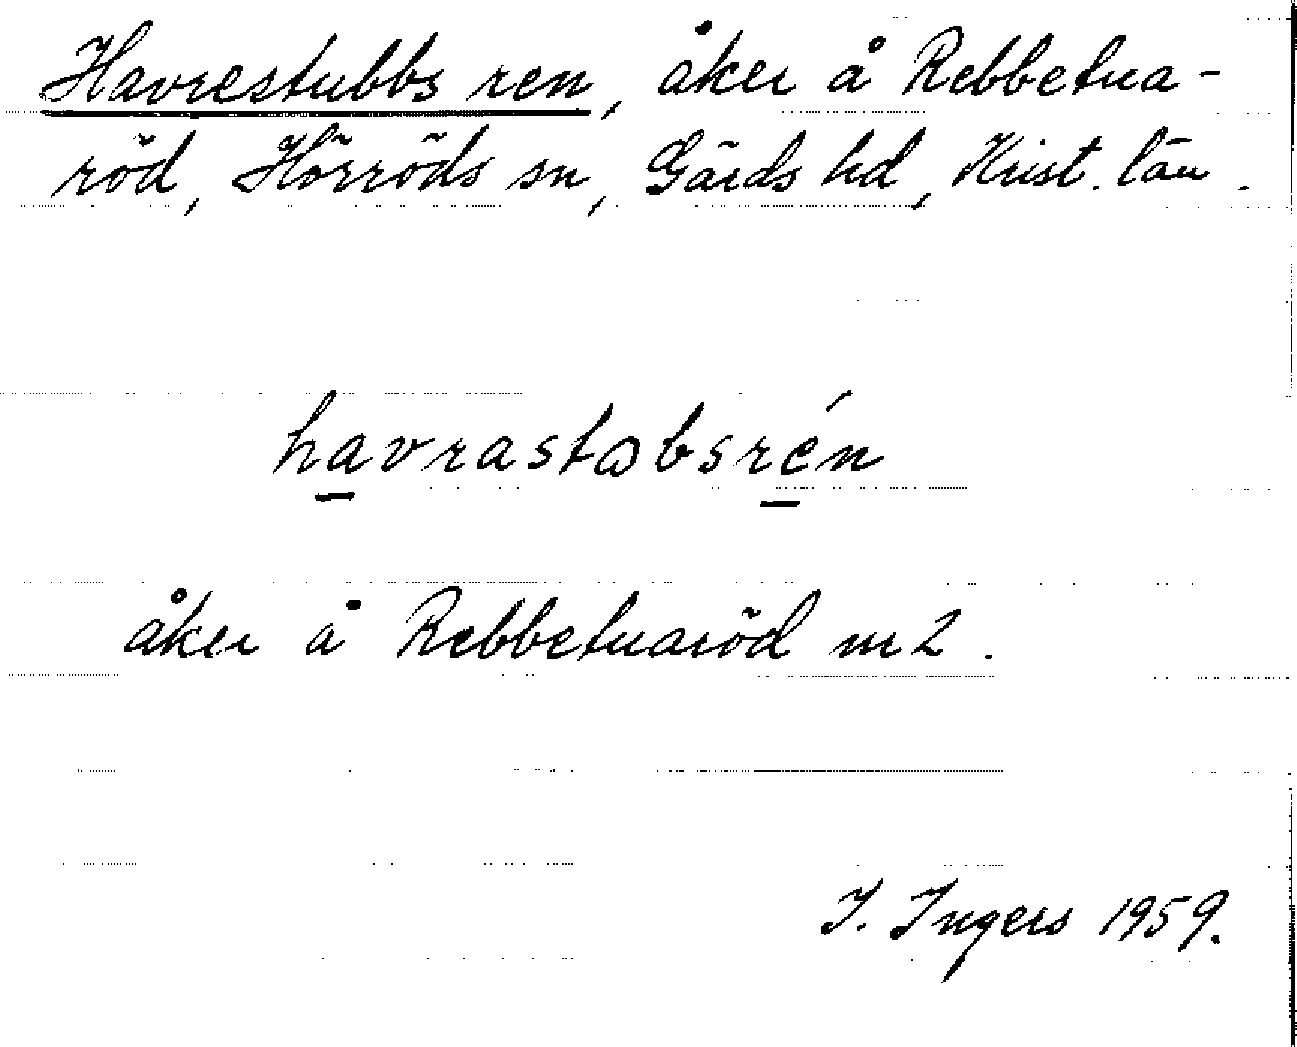 Havrestubbs ren, åker å Rebbetua-
röd, Hörröds sn, Gärds hd, Krist. län.
havrastɔbsrén
åker å Rebbetuaröd nr 2.
I. Ingers 1959.